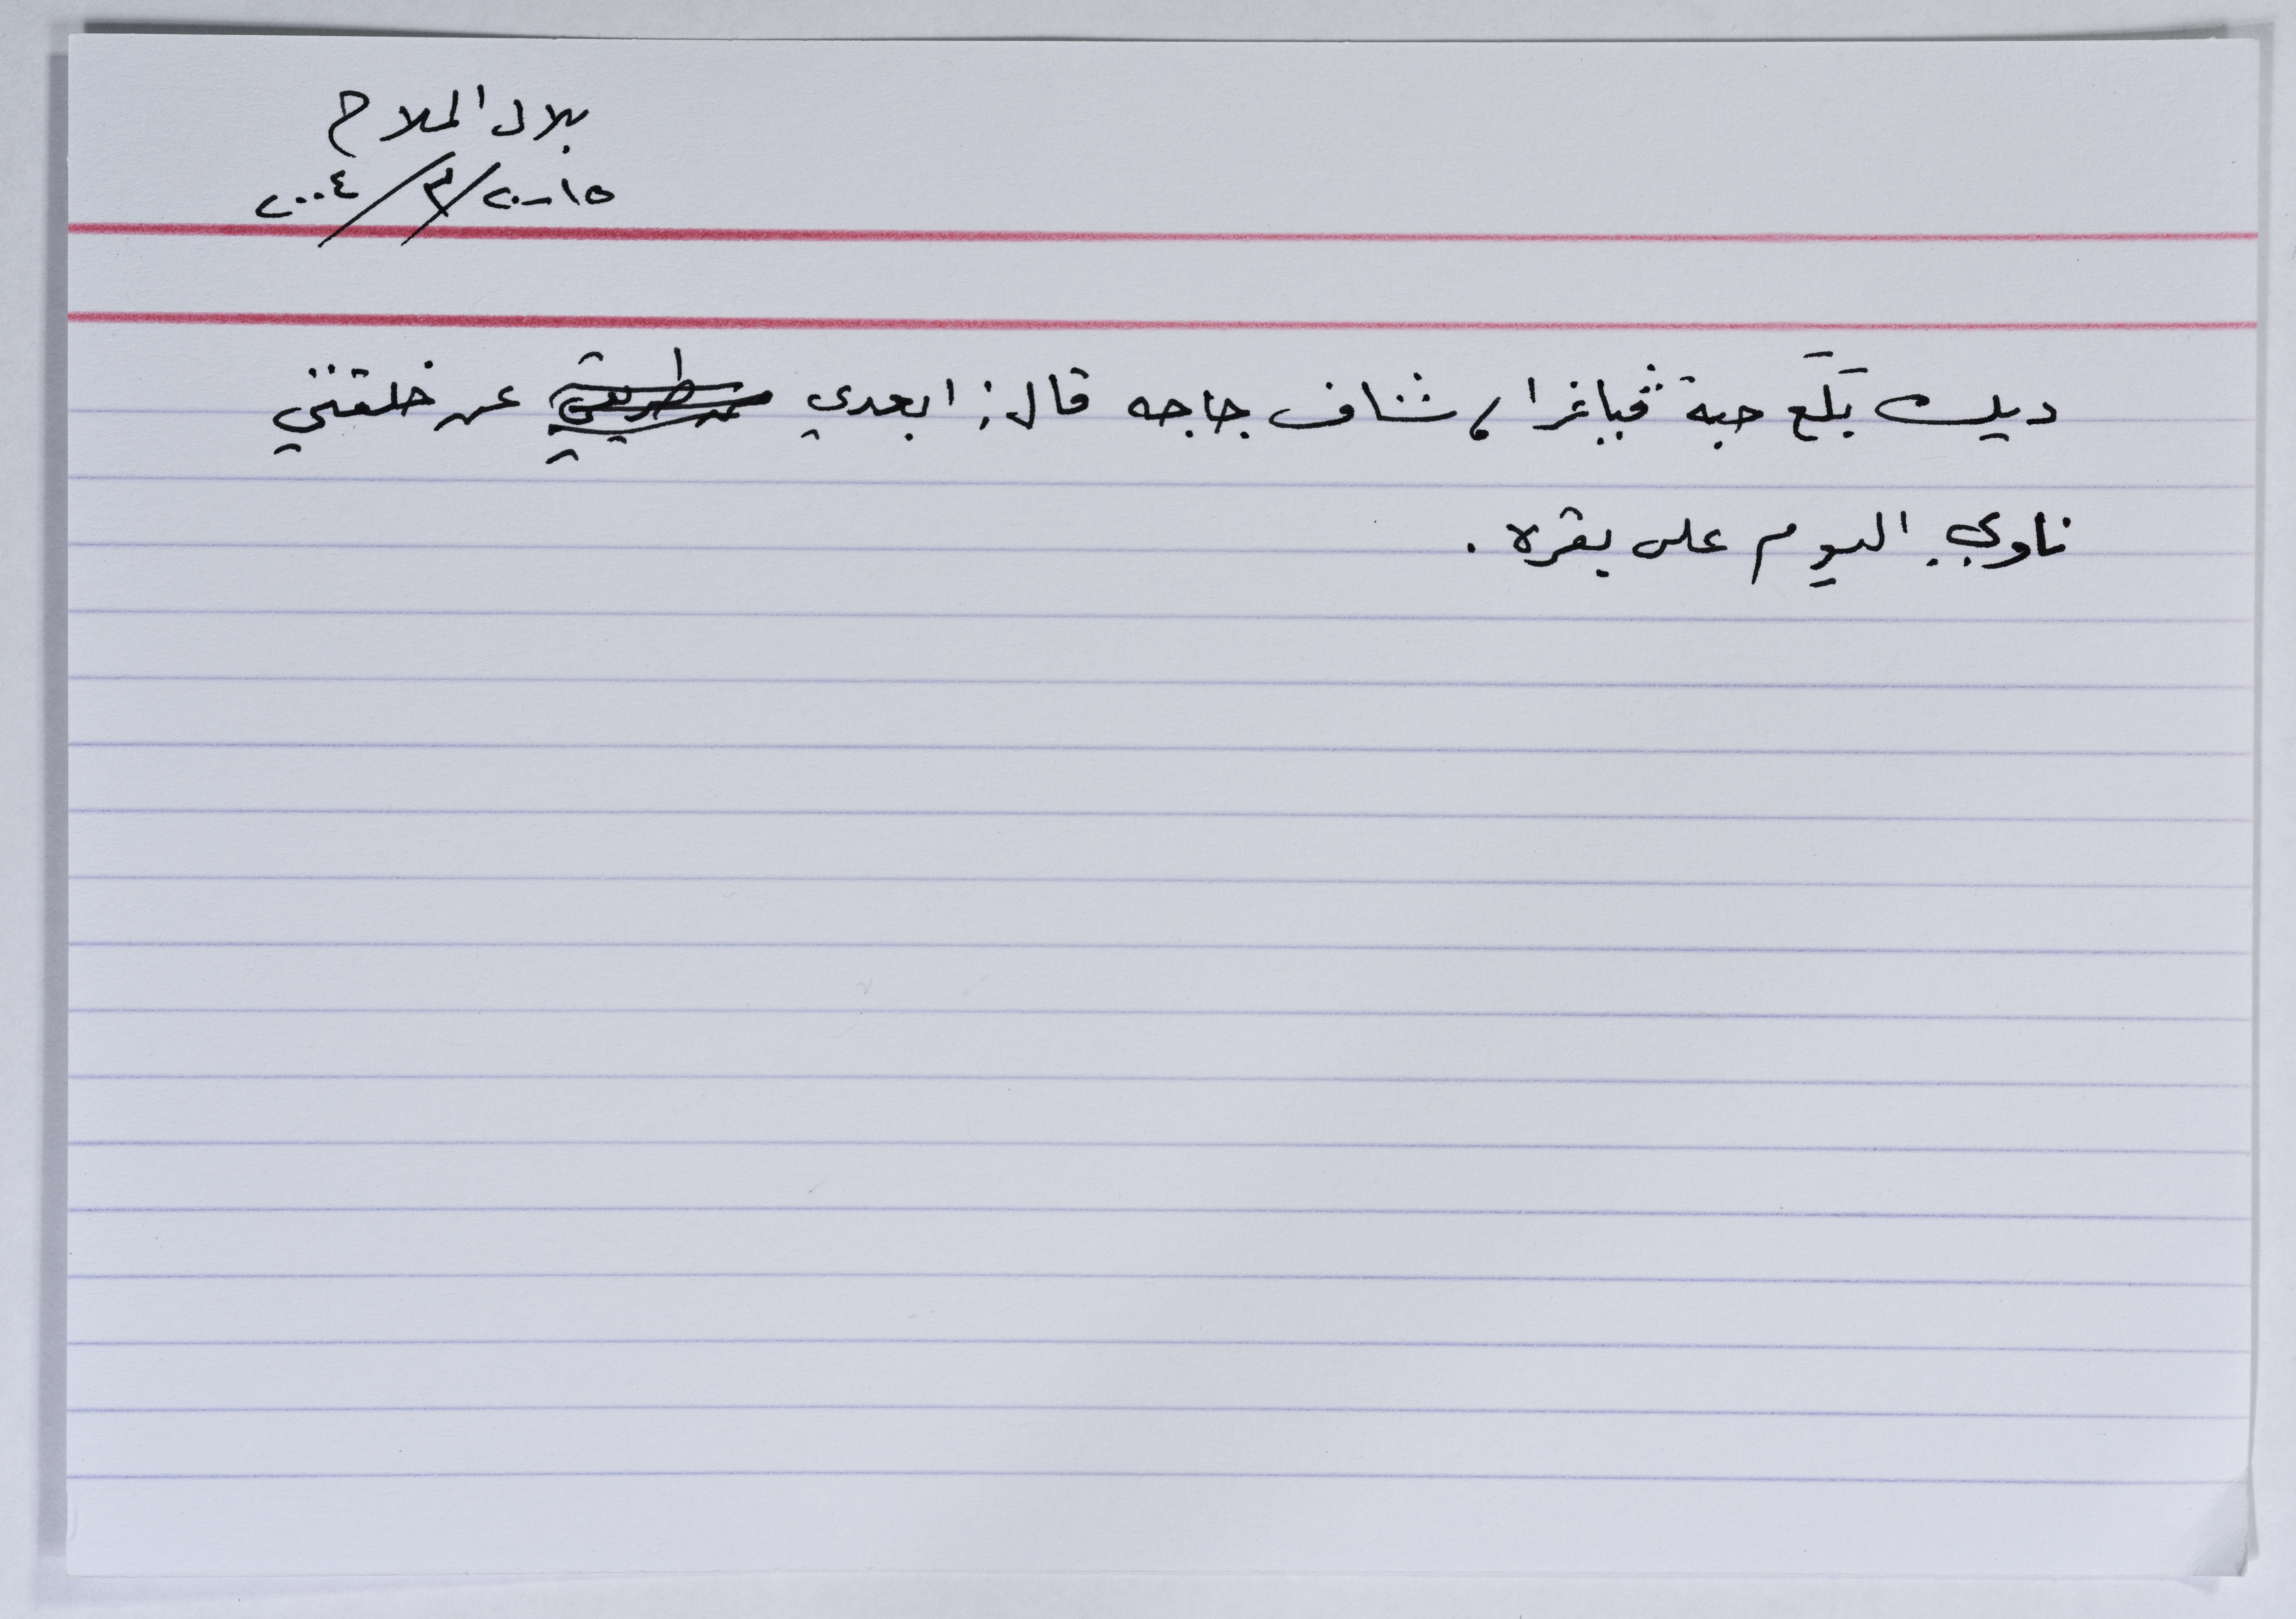 بلال الملاح
١٥-٢٠/٣/٢٠٠٤
ديك بَلَع حبة ڤياغرا، شاف جاجه قال: ابعدي عن خلقتني
ناوي اليوم على بقره.